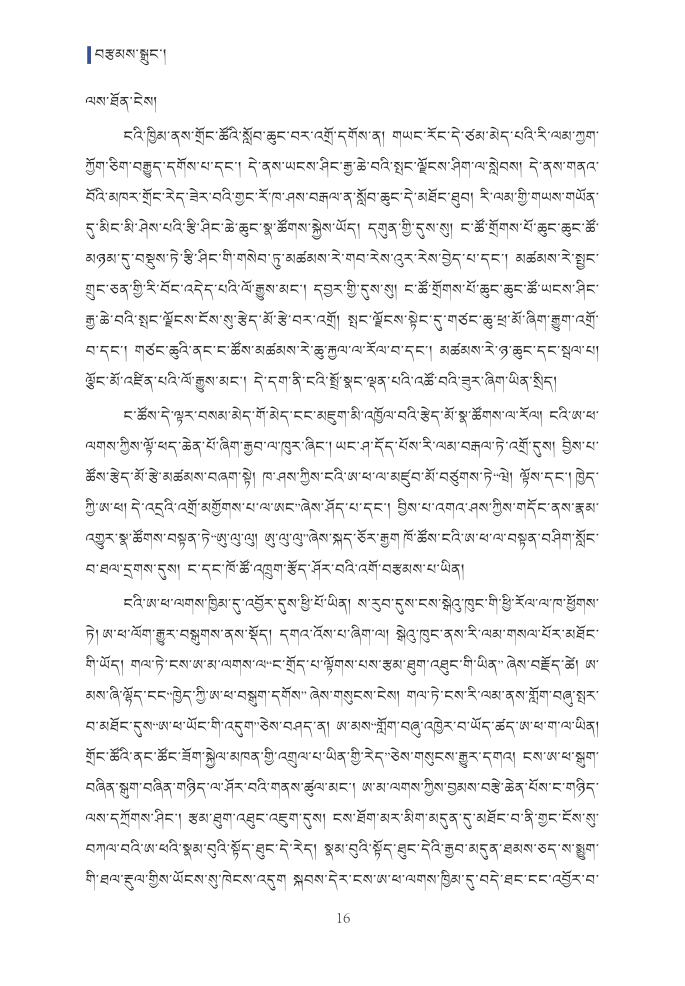 བརྩམས་སྒྲུང་།
ལས་ཐོན་ངེས།
ངའི་ཁྱིམ་ནས་གྲོང་ཚོའི་སློབ་ཆུང་བར་འགྲོ་དགོས་ན། གཡང་རོང་དེ་ཙམ་མེད་པའི་རི་ལམ་ཀྱག་
ཀྱོག་ཅིག་བརྒྱུད་དགོས་པ་དང་། དེ་ནས་ཡངས་ཤིང་རྒྱ་ཆེ་བའི་སྤང་ལྗོངས་ཤིག་ལ་སླེབས། དེ་ནས་གནའ་
བོའི་མཁར་གྲོང་རེད་ཟེར་བའི་གྱང་རོ་ཁ་ཤས་བརྒལ་ན་སློབ་ཆུང་དེ་མཐོང་ཐུབ། རི་ལམ་གྱི་གཡས་གཡོན་
དུ་མིང་མི་ཤེས་པའི་རྩི་ཤིང་ཆེ་ཆུང་སྣ་ཚོགས་སྐྱེས་ཡོད། དགུན་གྱི་དུས་སུ། ང་ཚོ་གྲོགས་པོ་ཆུང་ཆུང་ཚོ་
མཉམ་དུ་བསྡུས་ཏེ་རྩི་ཤིང་གི་གསེབ་ཏུ་མཚམས་རེ་གབ་རེས་འུར་རེས་བྱེད་པ་དང་། མཚམས་རེ་སྤྱང་
གྲུང་ཅན་གྱི་རི་བོང་འདེད་པའི་ལོ་རྒྱུས་མང་། དབྱར་གྱི་དུས་སུ། ང་ཚོ་གྲོགས་པོ་ཆུང་ཆུང་ཚོ་ཡངས་ཤིང་
རྒྱ་ཆེ་བའི་སྤང་ལྗོངས་ངོས་སུ་རྩེད་མོ་རྩེ་བར་འགྲོ། སྤང་ལྗོངས་སྟེང་དུ་གཙང་ཆུ་ཕྲ་མོ་ཞིག་རྒྱུག་འགྲོ་
བ་དང་། གཙང་ཆུའི་ནང་ང་ཚོས་མཚམས་རེ་ཆུ་རྐྱལ་ལ་རོལ་བ་དང་། མཚམས་རེ་ཉ་ཆུང་དང་སྦལ་པ།
ལྕོང་མོ་འཛིན་པའི་ལོ་རྒྱུས་མང་། དེ་དག་ནི་ངའི་སྤྲོ་སྣང་ལྡན་པའི་འཚོ་བའི་ཟུར་ཞིག་ཡིན་སྲིད།
ང་ཚོས་དེ་ལྟར་བསམ་མེད་གོ་མེད་ངང་མཇུག་མི་འཁྱོལ་བའི་རྩེད་མོ་སྣ་ཚོགས་ལ་རོལ། ངའི་ཨ་ཕ་
ལགས་ཀྱིས་ལྟོ་ཕད་ཆེན་པོ་ཞིག་རྒྱབ་ལ་ཁུར་ཞིང་། ཡང་ཤ་དོད་པོས་རི་ལམ་བརྒལ་ཏེ་འགྲོ་དུས། བྱིས་པ་
ཚོས་རྩེད་མོ་རྩེ་མཚམས་བཞག་སྟེ། ཁ་ཤས་ཀྱིས་ངའི་ཨ་ཕ་ལ་མཛུབ་མོ་བཙུགས་ཏེ“ཝེ། ལྟོས་དང་། ཁྱེད་
ཀྱི་ཨ་ཕ། དེ་འདྲའི་འགྲོ་མགྱོགས་པ་ལ་ཨང”ཞེས་ཤོད་པ་དང་། བྱིས་པ་འགའ་ཤས་ཀྱིས་གདོང་ནས་རྣམ་
འགྱུར་སྣ་ཚོགས་བསྟན་ཏེ“ཨུ་ལུ་ལུ། ཨུ་ལུ་ལུ”ཞེས་སྐད་ཅོར་རྒྱག ཁོ་ཚོས་ངའི་ཨ་ཕ་ལ་བསྟན་བཤིག་སློང་
བ་ཐལ་དྲགས་དུས། ང་དང་ཁོ་ཚོ་འཁྲུག་རྩོད་ཤོར་བའི་འགོ་བརྩམས་པ་ཡིན།
ངའི་ཨ་ཕ་ལགས་ཁྱིམ་དུ་འབྱོར་དུས་ཕྱི་པོ་ཡིན། ས་རུབ་དུས་ངས་སྒེའུ་ཁུང་གི་ཕྱི་རོལ་ལ་ཁ་ཕྱོགས་
ཏེ། ཨ་ཕ་ལོག་རྒྱུར་བསྒུགས་ནས་སྡོད། དགའ་འོས་པ་ཞིག་ལ། སྒེའུ་ཁུང་ནས་རི་ལམ་གསལ་པོར་མཐོང་
གི་ཡོད། གལ་ཏེ་ངས་ཨ་མ་ལགས་ལ“ང་གྲོད་པ་ལྟོགས་པས་རྩམ་ཐུག་འཐུང་གི་ཡིན” ཞེས་བརྗོད་ཚེ། ཨ་
མས་ཞི་ལྷོད་ངང“ཁྱེད་ཀྱི་ཨ་ཕ་བསྒུག་དགོས” ཞེས་གསུངས་ངེས། གལ་ཏེ་ངས་རི་ལམ་ནས་གློག་བཞུ་སྤར་
བ་མཐོང་དུས“ཨ་ཕ་ཡོང་གི་འདུག”ཅེས་བཤད་ན། ཨ་མས“གློག་བཞུ་འཁྱེར་བ་ཡོད་ཚད་ཨ་ཕ་ག་ལ་ཡིན།
གྲོང་ཚོའི་ནང་ཚོང་ཟོག་སྐྱེལ་མཁན་གྱི་འགྲུལ་པ་ཡིན་གྱི་རེད”ཅེས་གསུངས་རྒྱུར་དགའ། ངས་ཨ་ཕ་སྒུག་
བཞིན་སྒུག་བཞིན་གཉིད་ལ་ཤོར་བའི་གནས་ཚུལ་མང་། ཨ་མ་ལགས་ཀྱིས་བྱམས་བརྩེ་ཆེན་པོས་ང་གཉིད་
ལས་དཀྲོགས་ཤིང་། རྩམ་ཐུག་འཐུང་འཇུག་དུས། ངས་ཐོག་མར་མིག་མདུན་དུ་མཐོང་བ་ནི་གྱང་ངོས་སུ་
བཀལ་བའི་ཨ་ཕའི་སྣམ་བུའི་སྟོད་ཐུང་དེ་རེད། སྣམ་བུའི་སྟོད་ཐུང་དེའི་རྒྱབ་མདུན་ཐམས་ཅད་ས་སྨྱུག་
གི་ཐལ་རྡུལ་གྱིས་ཡོངས་སུ་ཁེངས་འདུག སྐབས་དེར་ངས་ཨ་ཕ་ལགས་ཁྱིམ་དུ་བདེ་ཐང་ངང་འབྱོར་བ་
16